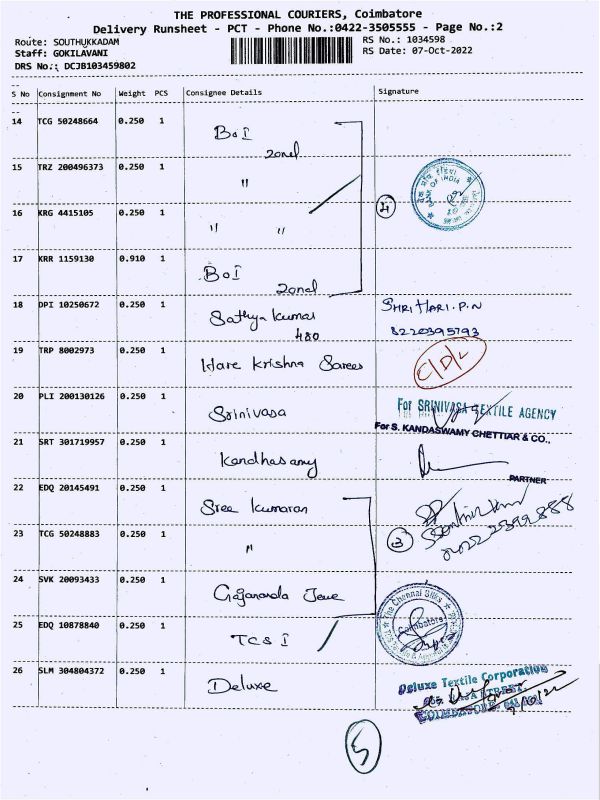 THE PROFESSIONAL COURIERS, Coimbatore
Delivery Runsheet - PCT - Phone No.:0422-3505555 - Page No.:2
Route: SOUTHUKKADAM
RS No.: 1034598
Staff: GOKILAVANI
RS Date: 07-Oct-2022
DRS No.: DCJB103459802
S No Consignment No Weight PCS Consignee Details Signature
14 TCG 50248664 0.250 1 BoI
zonel
15 TRZ 200496373 0.250 1 "
BANK OF INDIA
16 KRG 4415105 0.250 1 " " 4
17 KRR 1159130 0.910 1 BoI
zonel
18 DPI 10250672 0.250 1 Sathya kumar SHRI HARI.P.N
480 8220395793
19 TRP 8002973 0.250 1 Hare krishna Sarees C/D/L
20 PLI 200130126 0.250 1 Srinivasa For SRINIVASA TEXTILE AGENCY
For S. KANDASWAMY CHETTIAR & CO.,
21 SRT 301719957 0.250 1 Kandhasamy
PARTNER
22 EDQ 20145491 0.250 1 Sree kumaran
23 TCG 50248883 0.250 1 " 3
24 SVK 20093433 0.250 1 Gajananda Jewe
The Chennai Silks
Coimbatore
25 EDQ 10878840 0.250 1 TCS I
26 SLM 304804372 0.250 1 Deluxe Deluxe Textile Corporation
5